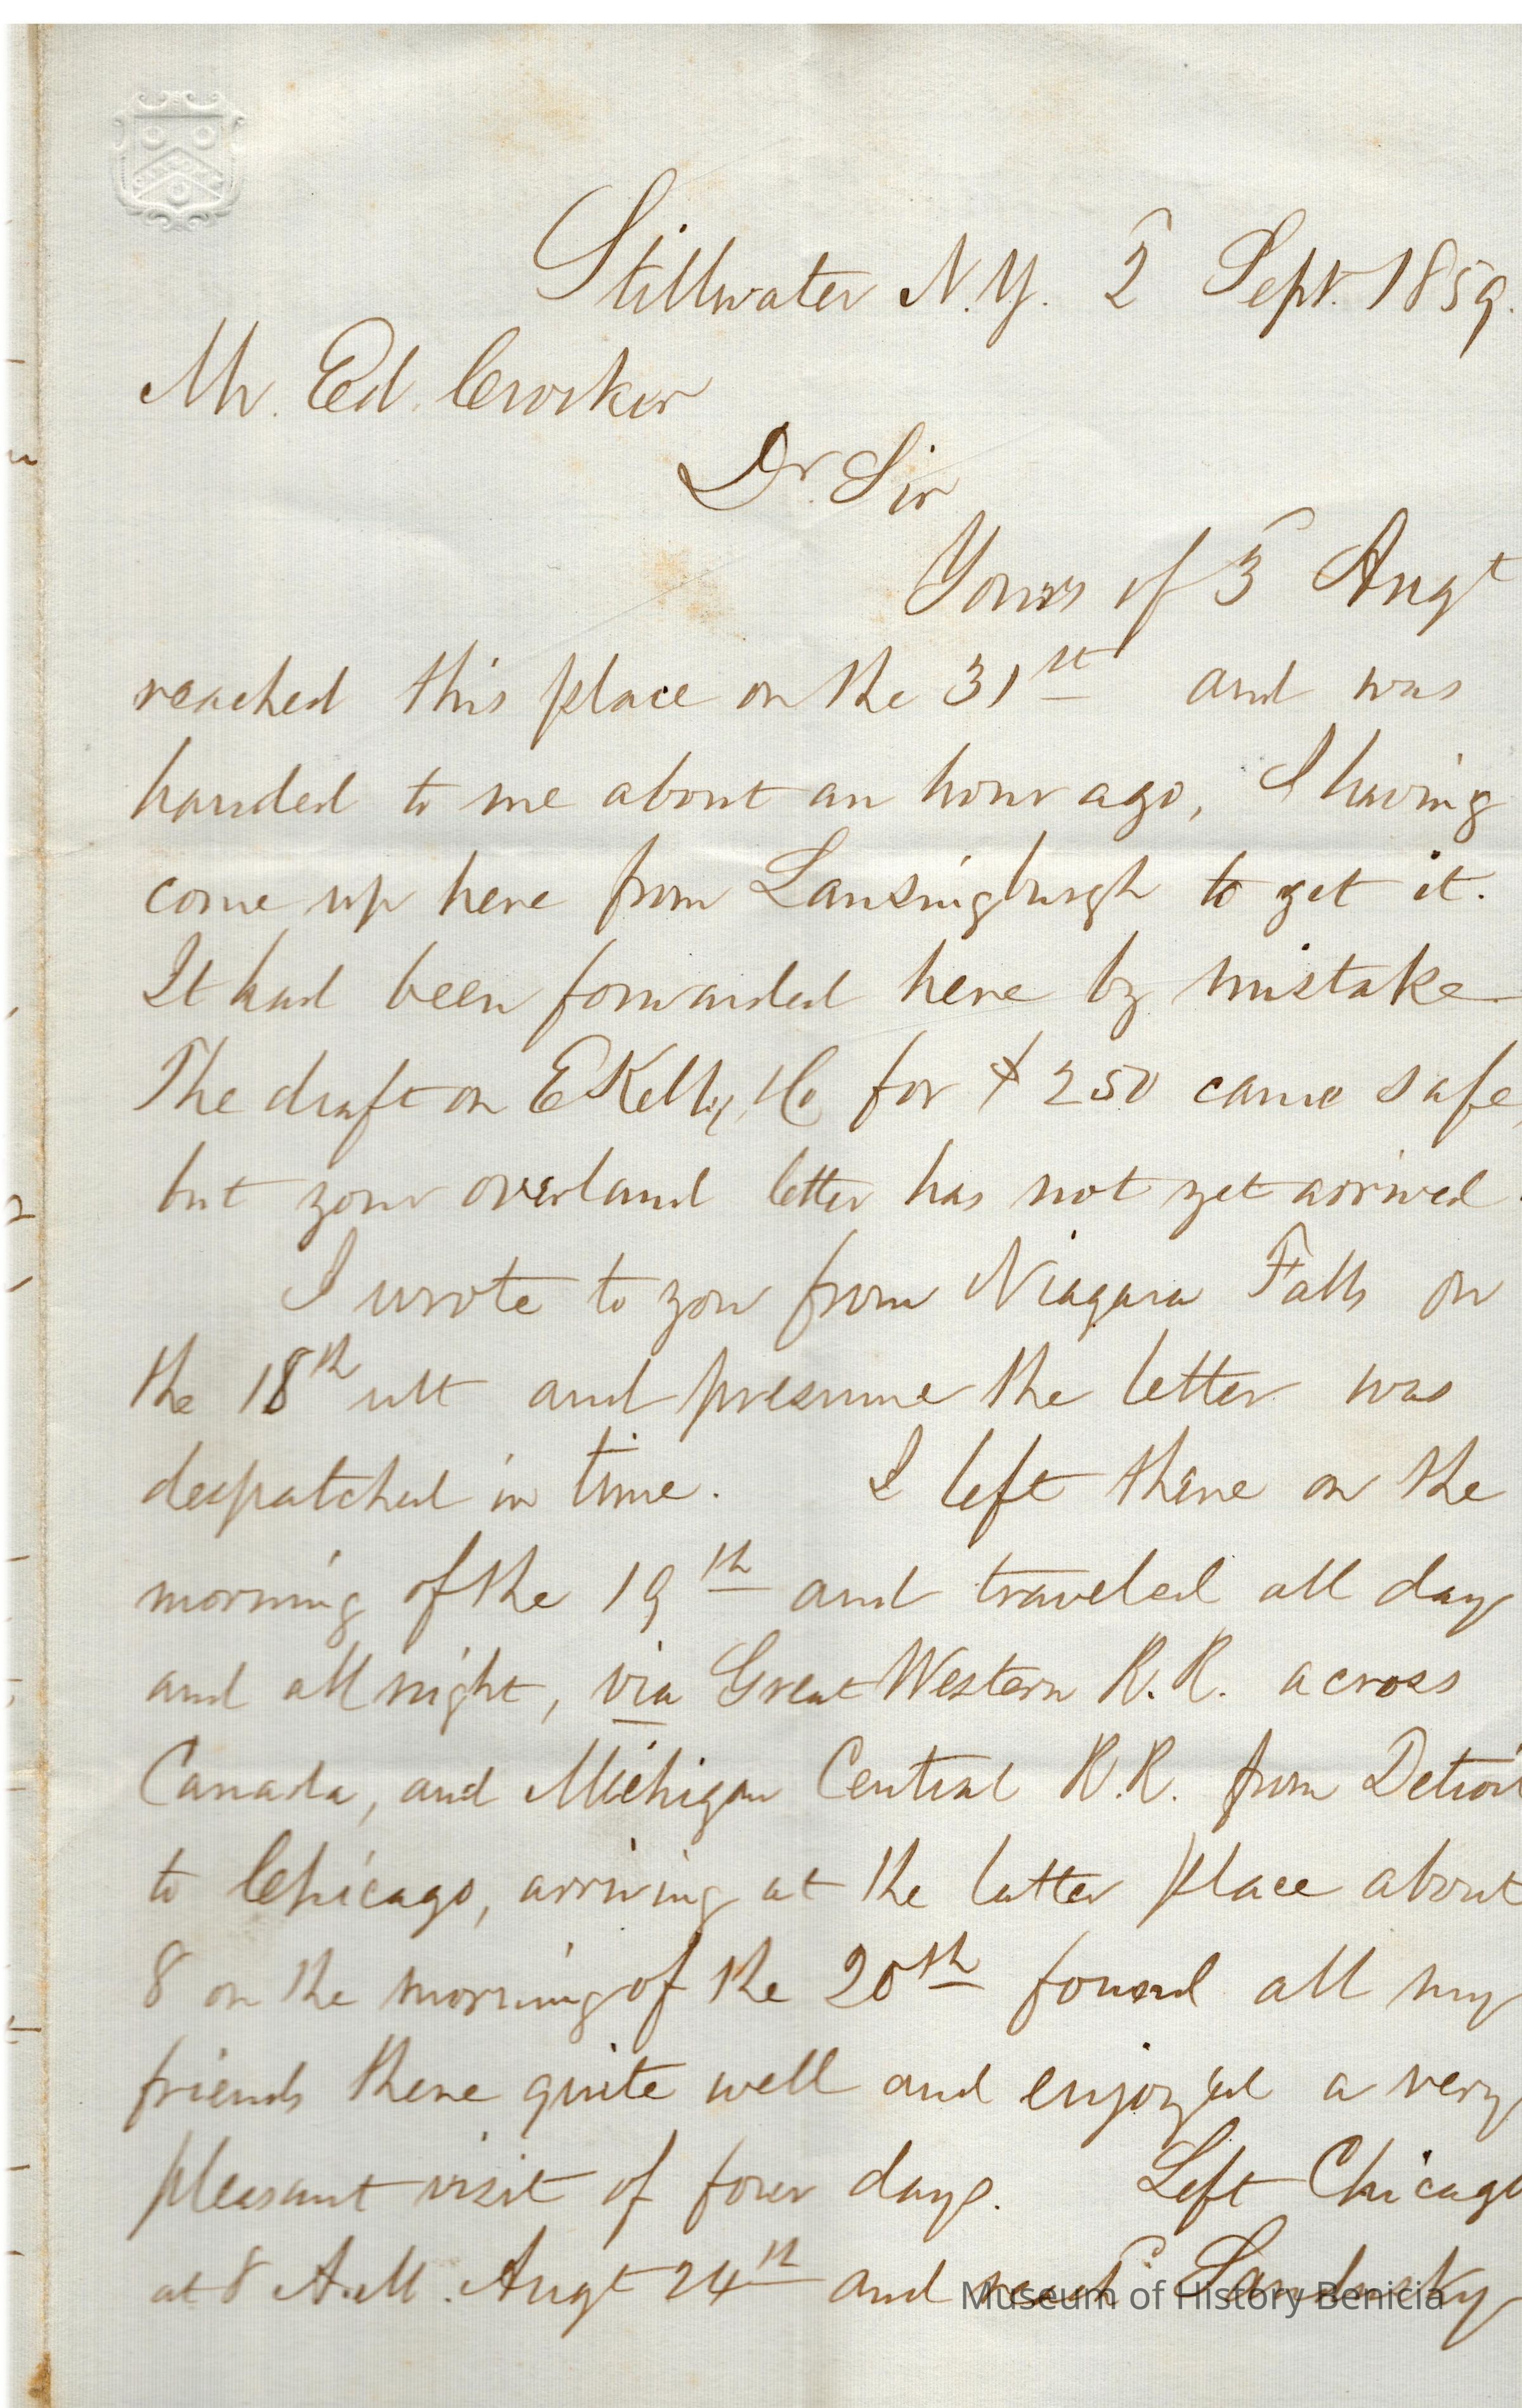 Stillwater N.Y. 2 Sept. 1859.
Mr. Ed. Crocker
Dr. Sir
Yours of 5 Augt
reached this place on the 31st and was
handed to me about an hour ago, I having
come up here from Lansingburgh to get it.
It had been forwarded here by mistake
The draft on E Kelly, & Co for $250 came safe,
but your overland letter has not yet arrived.
I wrote to you from Niagara Falls on
the 18th ult and presume the letter was
despatched in time. I left there on the
morning of the 19th and traveled all day
and all night, via Great Western R.R. across
Canada, and Michigan Central R.R. from Detroit
to Chicago, arriving at the latter place about
8 on the morning of the 20th found all my
friends there quite well and enjoyed a very
pleasant visit of four days. Left Chicago
at 8 A.M. Augt 24th and Sandusky
Museum of History Benicia